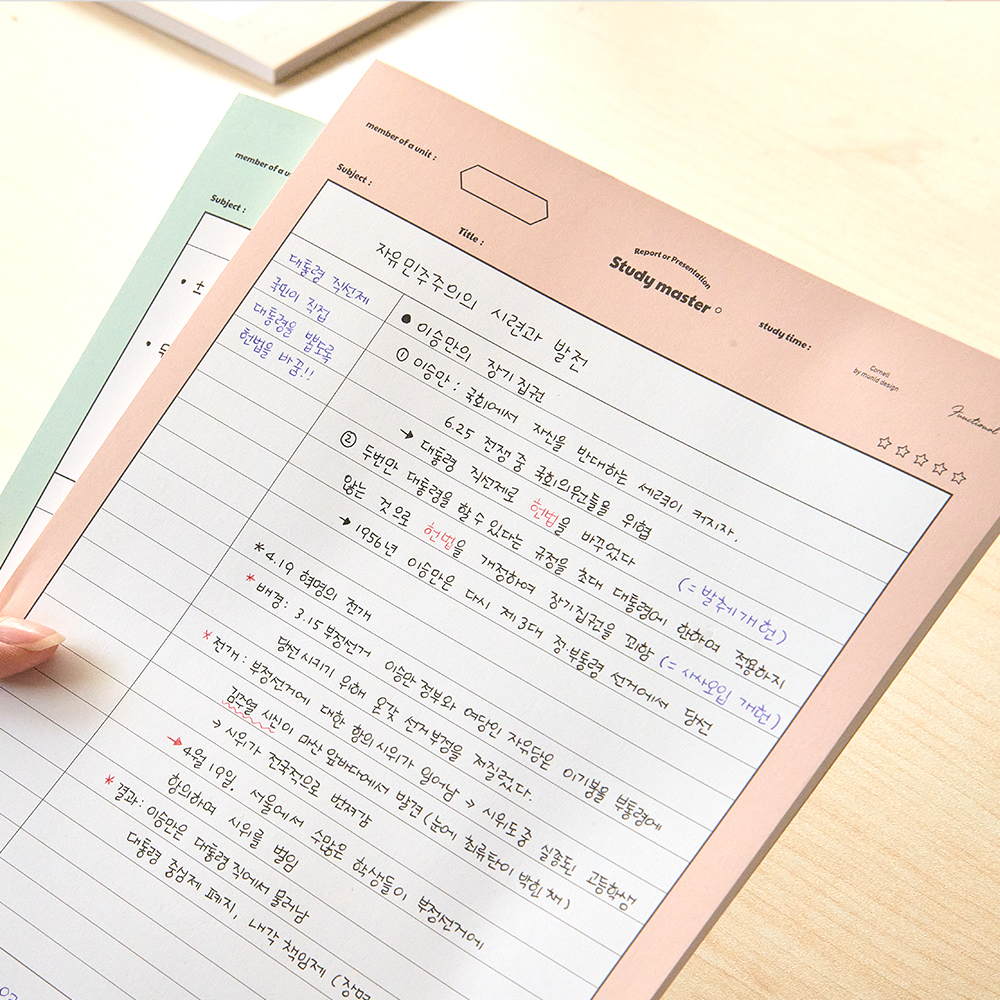 member of a unit :
Subject :
Title :
Report or Presentation
Study master
study time :
Cornell
by munid design
Functional
member of a
Subject :
자유민주주의의 시련과 발전
대통령 직선제
국민이 직접
대통령을 뽑도록
헌법을 바꿈!!
● 이승만의 장기 집권
① 이승만 : 국회에서 자신을 반대하는 세력이 커지자,
6.25 전쟁 중 국회의원들을 위협
→ 대통령 직선제로 헌법을 바꾸었다 (= 발췌개헌)
② 두번만 대통령을 할 수 있다는 규정을 초대 대통령에 한하여 적용하지
않는 것으로 헌법을 개정하여 장기집권을 꾀함 (= 사사오입 개헌)
→ 1956년 이승만은 다시 제 3대 정·부통령 선거에서 당선
* 4.19 혁명의 전개
* 배경 : 3.15 부정선거 이승만 정부와 여당인 자유당은 이기붕을 부통령에
당선시키기 위해 온갖 선거 부정을 저질렀다.
* 전개 : 부정선거에 대한 항의 시위가 일어남 → 시위도중 실종된 고등학생
김주열 시신이 마산 앞바다에서 발견 (눈에 최류탄이 박힌 채)
→ 시위가 전국적으로 번져감
→ 4월 19일. 서울에서 수많은 학생들이 부정선거에
항의하며 시위를 벌임
* 결과 : 이승만은 대통령 직에서 물러남
대통령 중심제 폐지, 내각 책임제 (장면